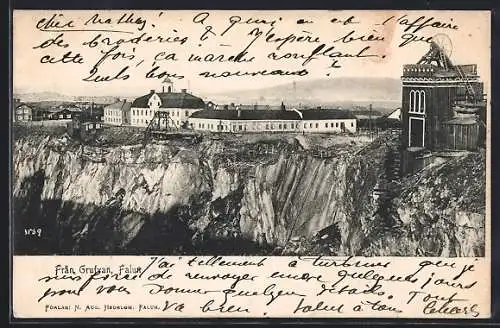 cher Mathey! A quoi en est l'affaire
des broderies? J'espère bien que
cette fois, ça marche en ronflant.
Quels bien nouveaux?
No 9
Från Grufvan, Falun.
J'ai tellement à turbiner que je
suis forcé de renvoyer encore quelques jours
pour vous donner quelques détails. Tout
va bien. Salut à tous.
FÖRLAG: N. AUG. HEDBLOM. FALUN.